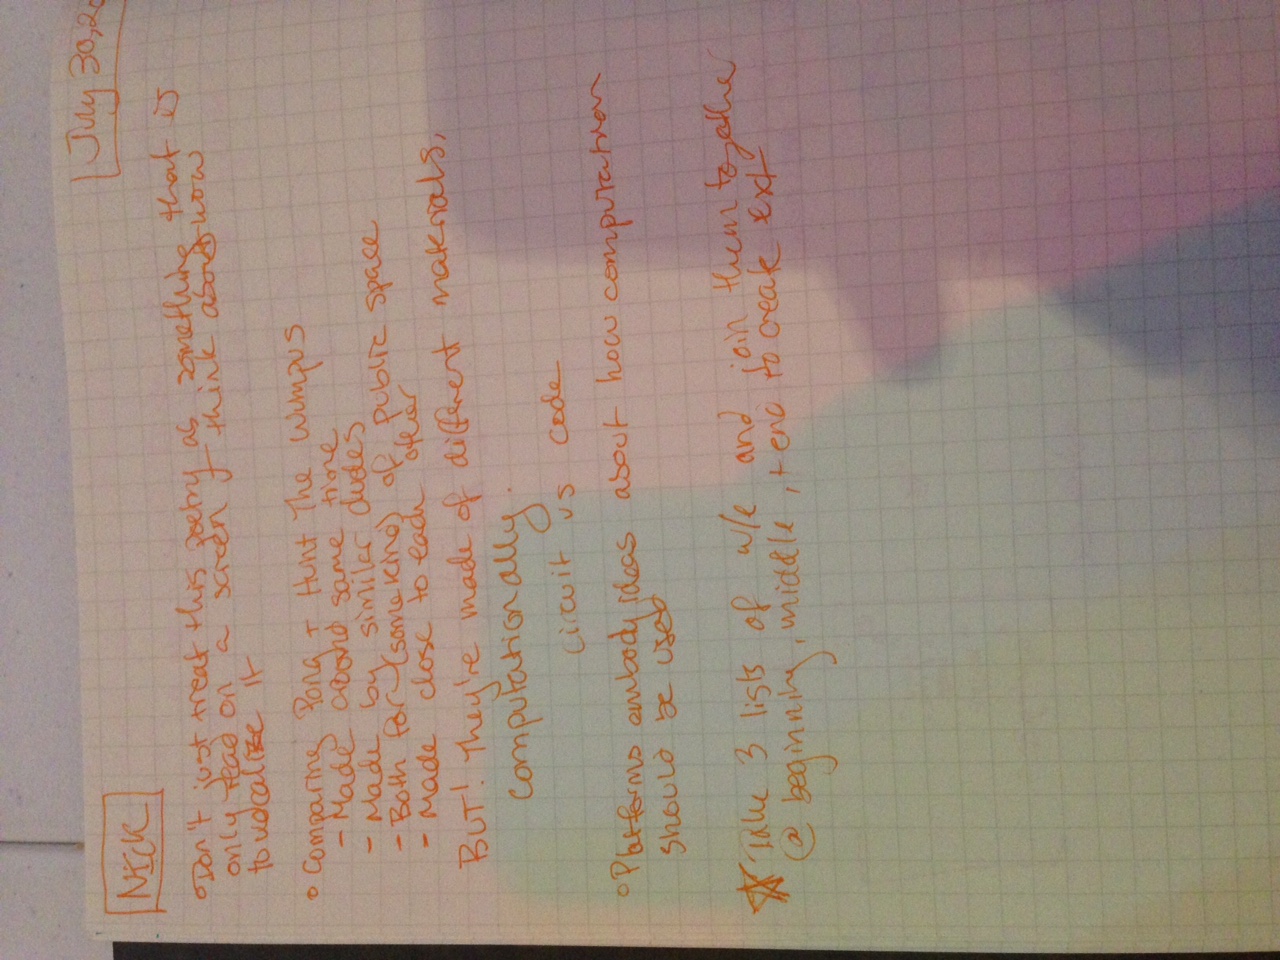 NICK
July 30, 20
Don't just treat this poetry as something that is
only read on a screen + think about how
to vocalize it
Comparing Pong + Hunt The Wumpus
- Made around same time
- Made by similar dudes
- Both for (some kind) of public space
- Made close to each other
BUT! They're made of different materials,
computationally.
circuit vs code
Platforms embody ideas about how computation
should be used
Take 3 lists of w/e and join them together
@ beginning, middle, + end to create text